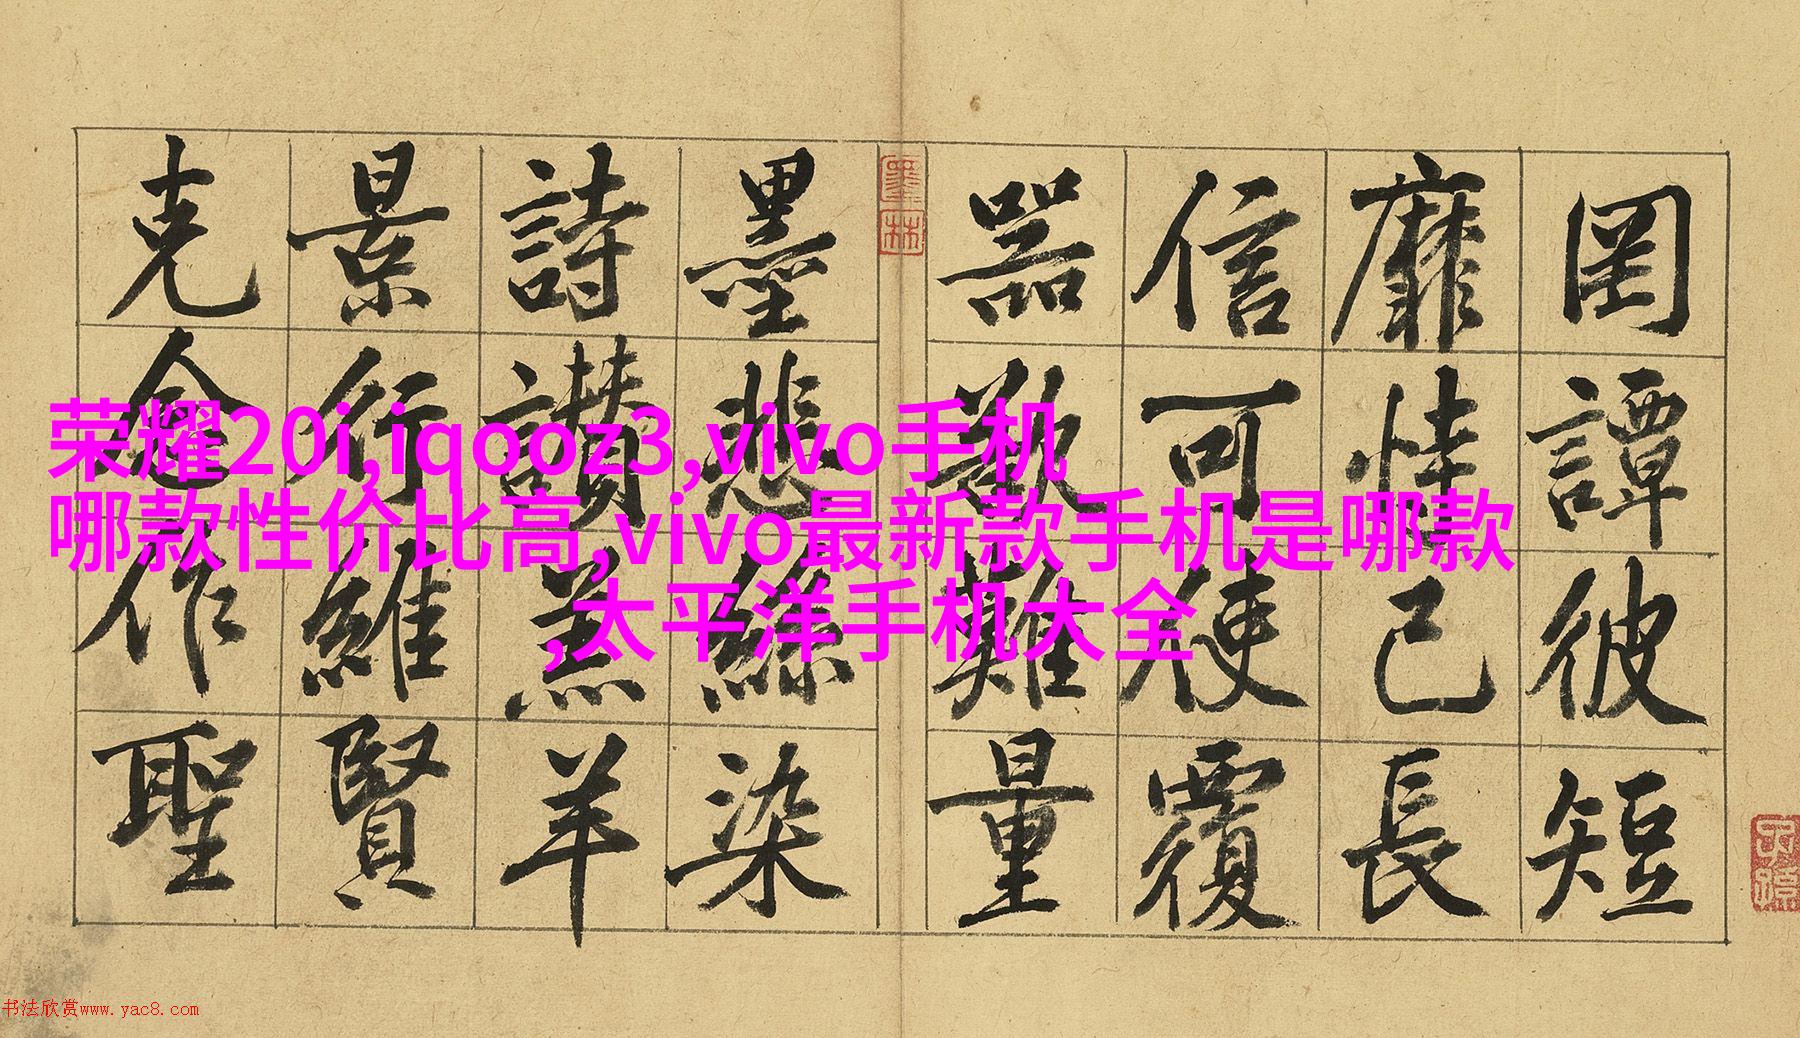 罔譚彼短
靡恃己長
信可使覆
器欲難量
墨林
墨悲絲染
詩讚羔羊
景行維賢
克念作聖
荣耀20i,iqooz3,vivo手机
哪款性价比高,vivo最新款手机是哪款
,太平洋手机大全
书法欣赏www.yac8.com